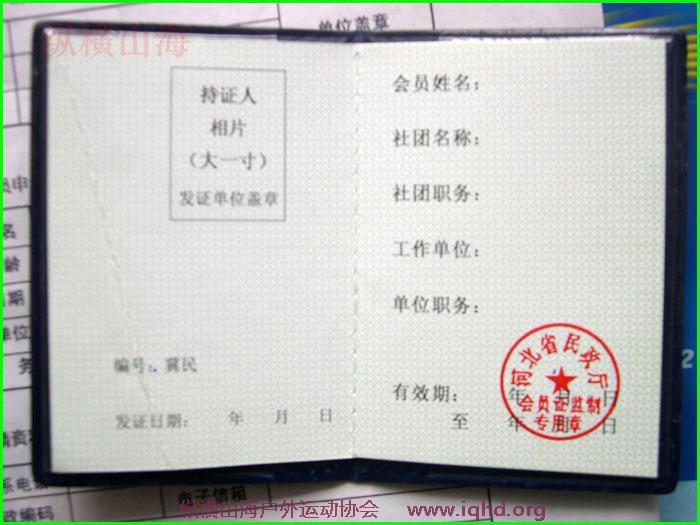 纵横山海
单位盖章
持证人
相片
（大一寸）
发证单位盖章
编号：冀民
发证日期： 年 月 日
会员姓名：
社团名称：
社团职务：
工作单位：
单位职务：
有效期： 年 月 日
至 年 月 日
河北省民政厅
会员证监制
专用章
电子信箱
纵横山海户外运动协会 www.iqhd.org